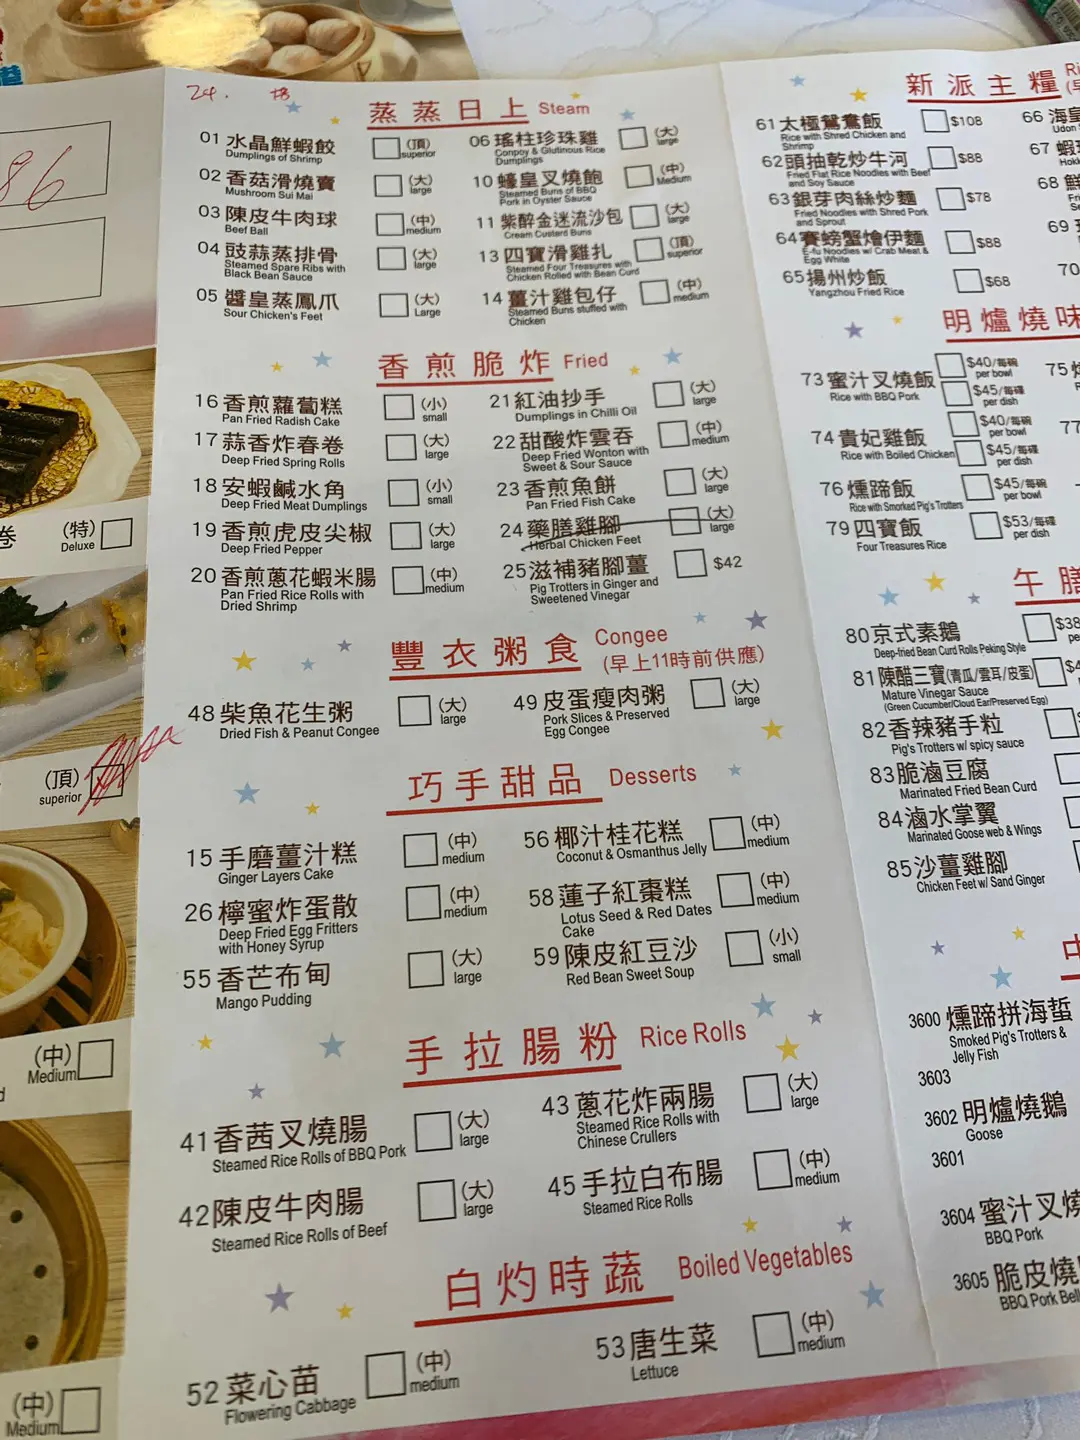 86
24.
蒸蒸日上 Steam
01 水晶鮮蝦餃 (頂)
Dumplings of Shrimp superior
02 香菇滑燒賣 (大)
Mushroom Sui Mai large
03 陳皮牛肉球 (中)
Beef Ball medium
04 豉蒜蒸排骨 (大)
Steamed Spare Ribs with large
Black Bean Sauce
05 醬皇蒸鳳爪 (大)
Sour Chicken's Feet Large
06 瑤柱珍珠雞 (大)
Conpoy & Glutinous Rice large
Dumplings
10 蠔皇叉燒飽 (中)
Steamed Buns of BBQ Medium
Pork in Oyster Sauce
11 紫醉金迷流沙包 (大)
Cream Custard Buns large
13 四寶滑雞扎 (頂)
Steamed Four Treasures with superior
Chicken Rolled with Bean Curd
14 薑汁雞包仔 (中)
Steamed Buns stuffed with medium
Chicken
香煎脆炸 Fried
16 香煎蘿蔔糕 (小)
Pan Fried Radish Cake small
17 蒜香炸春卷 (大)
Deep Fried Spring Rolls large
18 安蝦鹹水角 (小)
Deep Fried Meat Dumplings small
19 香煎虎皮尖椒 (大)
Deep Fried Pepper large
20 香煎蔥花蝦米腸 (中)
Pan Fried Rice Rolls with medium
Dried Shrimp
21 紅油抄手 (大)
Dumplings in Chilli Oil large
22 甜酸炸雲吞 (中)
Deep Fried Wonton with medium
Sweet & Sour Sauce
23 香煎魚餅 (大)
Pan Fried Fish Cake large
24 藥膳雞腳 (大)
Herbal Chicken Feet large
25 滋補豬腳薑 $42
Pig Trotters in Ginger and
Sweetened Vinegar
豐衣粥食 Congee
(早上11時前供應)
48 柴魚花生粥 (大)
Dried Fish & Peanut Congee large
49 皮蛋瘦肉粥 (大)
Pork Slices & Preserved large
Egg Congee
巧手甜品 Desserts
15 手磨薑汁糕 (中)
Ginger Layers Cake medium
26 檸蜜炸蛋散 (中)
Deep Fried Egg Fritters medium
with Honey Syrup
55 香芒布甸 (大)
Mango Pudding large
56 椰汁桂花糕 (中)
Coconut & Osmanthus Jelly medium
58 蓮子紅棗糕 (中)
Lotus Seed & Red Dates medium
Cake
59 陳皮紅豆沙 (小)
Red Bean Sweet Soup small
手拉腸粉 Rice Rolls
41 香茜叉燒腸 (大)
Steamed Rice Rolls of BBQ Pork large
42 陳皮牛肉腸 (大)
Steamed Rice Rolls of Beef large
43 蔥花炸兩腸 (大)
Steamed Rice Rolls with large
Chinese Crullers
45 手拉白布腸 (中)
Steamed Rice Rolls medium
白灼時蔬 Boiled Vegetables
52 菜心苗 (中)
Flowering Cabbage medium
53 唐生菜 (中)
Lettuce medium
卷 (特)
Deluxe
(頂)
superior
(中)
Medium
(中)
Medium
新派主糧
61 太極鴛鴦飯 $108
Rice with Shred Chicken and
Shrimp
62 頭抽乾炒牛河 $88
Fried Flat Rice Noodles with Beef
and Soy Sauce
63 銀芽肉絲炒麵 $78
Fried Noodles with Shred Pork
and Sprout
64 賽螃蟹燴伊麵 $88
E-fu Noodles w/ Crab Meat &
Egg White
65 揚州炒飯 $68
Yangzhou Fried Rice
66 海皇
Udon
67 蝦
68
69
70
明爐燒味
73 蜜汁叉燒飯 $40/每碗
Rice with BBQ Pork per bowl
$45/每碟
per dish
74 貴妃雞飯 $40/每碗
Rice with Boiled Chicken per bowl
$45/每碟
per dish
76 燻蹄飯 $45/每碗
Rice with Smoked Pig's Trotters per bowl
79 四寶飯 $53/每碟
Four Treasures Rice per dish
75
77
午膳
80 京式素鵝 $38
Deep-fried Bean Curd Rolls Peking Style
81 陳醋三寶(青瓜/雲耳/皮蛋)
Mature Vinegar Sauce
(Green Cucumber/Cloud Ear/Preserved Egg)
82 香辣豬手粒
Pig's Trotters w/ spicy sauce
83 脆滷豆腐
Marinated Fried Bean Curd
84 滷水掌翼
Marinated Goose web & Wings
85 沙薑雞腳
Chicken Feet w/ Sand Ginger
中
3600 燻蹄拼海蜇
Smoked Pig's Trotters &
Jelly Fish
3603
3602 明爐燒鵝
Goose
3601
3604 蜜汁叉燒
BBQ Pork
3605 脆皮燒
BBQ Pork Bel